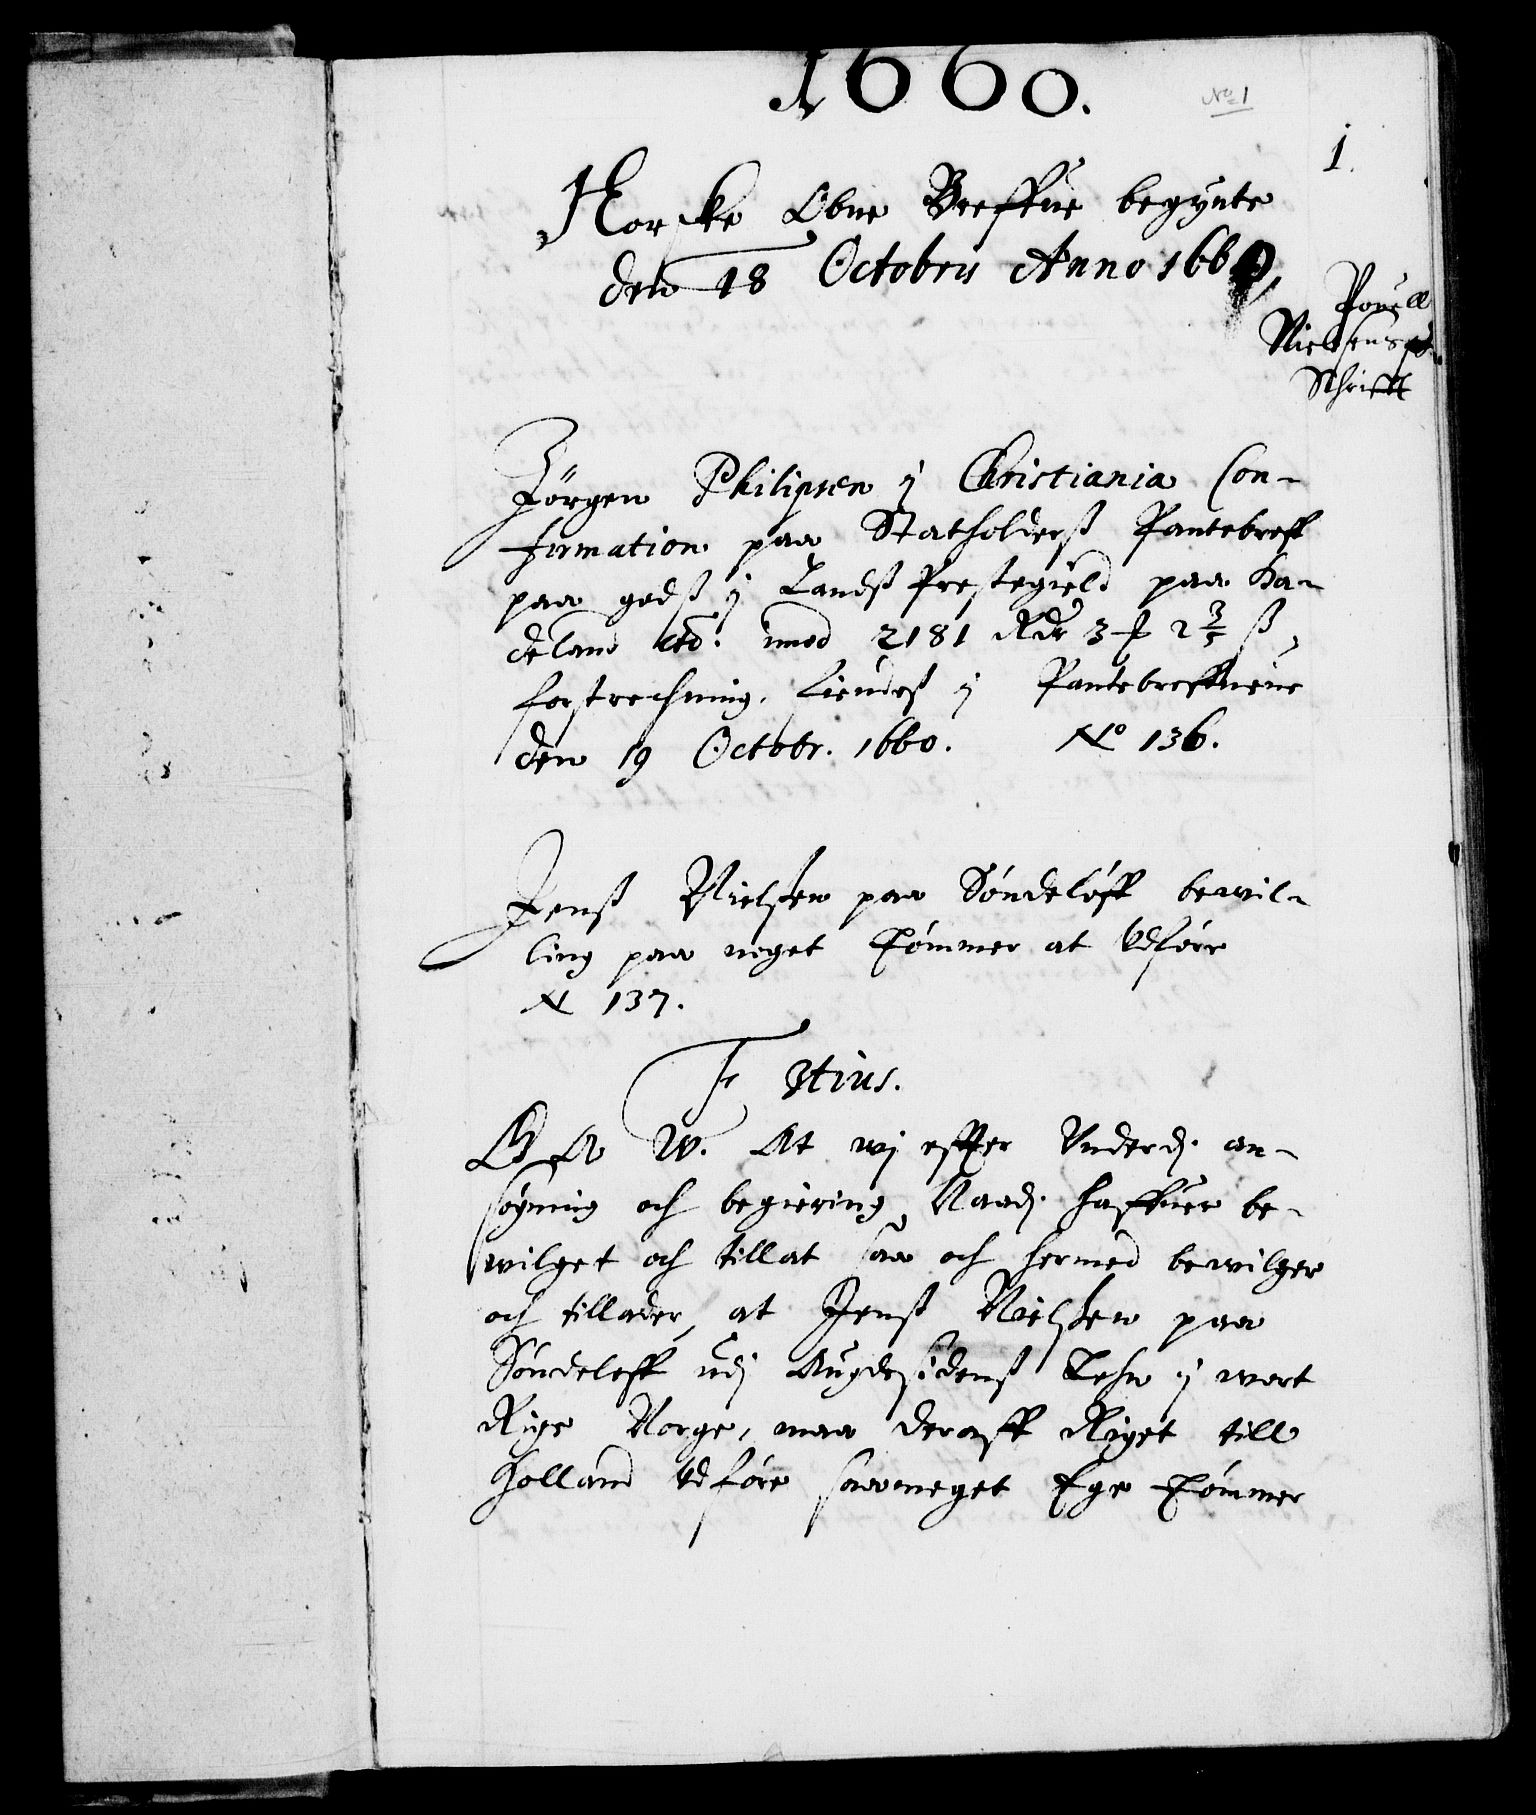 1660.
No 1
1.
Norske Obne Breffue begynte
den 18 Octobris Anno 1660,
Pouell
Nielsens
Schrifft
Jörgen Philipsen i Christiania Con-
firmation paa Statholderß Pantebreff
paa godß i Landß Prestegield paa Ha-
deland etc. imod 2181 Rdr 3 ß
forstrechning. Liudeß i Pantebreffuene
den 19 Octobr. 1660. No 136.
Jenß Nielsen paa Söndelöff bewil-
ling paa noget Tömmer at Udföre
N 137.
F 3tius.
G A W. At wj effter Underdj. an-
sögning och begiering, Naadj. haffuer be-
wilget och tillat saa och hermed bewilger
och tillader, at Jenß Nielsen paa
Söndeleff udj Augdesidenß Lehn i wort
Rige Norge, maa deraff Riget till
Holland Udföre saameget Ege Tömmer